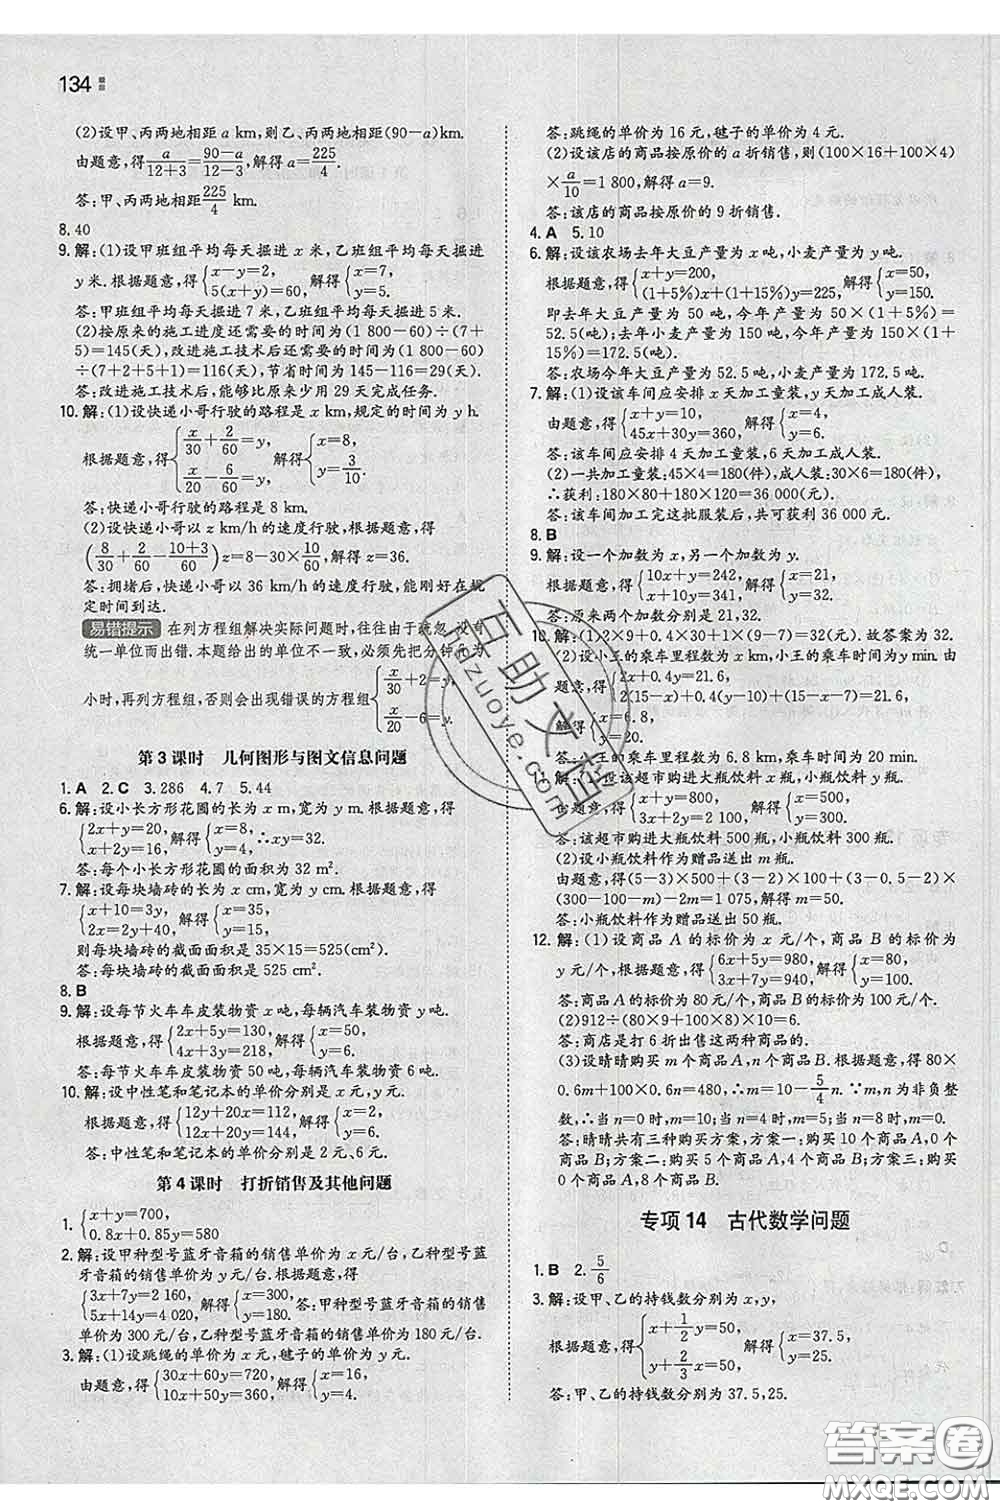 134
(2)设甲、丙两地相距 a km,则乙、丙两地相距(90-a)km.
由题意,得a/(12+3)=(90-a)/(12-3),解得a=225/4.
答:甲、丙两地相距225/4 km.
8.40
9.解:(1)设甲班组平均每天掘进 x 米,乙班组平均每天掘进
y 米.根据题意,得{x-y=2, 5(x+y)=60, 解得{x=7, y=5.
答:甲班组平均每天掘进 7 米,乙班组平均每天掘进 5 米.
(2)按原来的施工进度还需要的时间为(1 800-60)÷(7+
5)=145(天),改进施工技术后还需要的时间为(1 800-60)
÷(7+2+5+1)=116(天),节省时间为145-116=29(天).
答:改进施工技术后,能够比原来少用 29 天完成任务.
10.解:(1)设快递小哥行驶的路程是 x km,规定的时间为 y h.
根据题意,得{x/30+2/60=y, x/20-6/60=y, 解得{x=8, y=3/10.
答:快递小哥行驶的路程是 8 km.
(2)设快递小哥以 z km/h 的速度行驶,根据题意,得
(8/30+2/60-(10+3)/60)z=8-30×10/60,解得z=36.
答:拥堵后,快递小哥以 36 km/h 的速度行驶,能刚好在规
定时间到达.
易错提示 在列方程组解决实际问题时,往往由于疏忽,没有
统一单位而出错.本题给出的单位不一致,必须先把分钟化为
小时,再列方程组,否则会出现错误的方程组{x/30+2=y, x/20-6=y.
第3课时 几何图形与图文信息问题
1.A 2.C 3.286 4.7 5.44
6.解:设小长方形花圃的长为 x m,宽为 y m.根据题意,得
{2x+y=20, x+2y=16, 解得{x=8, y=4, ∴xy=32.
答:每个小长方形花圃的面积为 32 m².
7.解:设每块墙砖的长为 x cm,宽为 y cm.根据题意,得
{x+10=3y, 2x=2y+40, 解得{x=35, y=15.
则每块墙砖的截面面积是 35×15=525(cm²).
答:每块墙砖的截面面积是 525 cm².
8.B
9.解:设每节火车车皮装物资 x 吨,每辆汽车装物资 y 吨.
根据题意,得{2x+5y=130, 4x+3y=218, 解得{x=50, y=6.
答:每节火车车皮装物资 50 吨,每辆汽车装物资 6 吨.
10.解:设中性笔和笔记本的单价分别是 x 元,y 元.
根据题意,得{12y+20x=112, 12x+20y=144, 解得{x=2, y=6.
答:中性笔和笔记本的单价分别是 2 元、6 元.
第4课时 打折销售及其他问题
1.{x+y=700, 0.8x+0.85y=580
2.解:设甲种型号蓝牙音箱的销售单价为 x 元/台,乙种型号蓝
牙音箱的销售单价为 y 元/台.根据题意,得
{3x+7y=2 160, 5x+14y=4 020, 解得{x=300, y=180. 答:甲种型号蓝牙音箱的销售
单价为 300 元/台,乙种型号蓝牙音箱的销售单价为 180 元/台.
3.解:(1)设跳绳的单价为 x 元,毽子的单价为 y 元.
由题意,得{30x+60y=720, 10x+50y=360, 解得{x=16, y=4.
答:跳绳的单价为 16 元,毽子的单价为 4 元.
(2)设该店的商品按原价的 a 折销售,则(100×16+100×4)
×a/10=1 800,解得a=9.
答:该店的商品按原价的 9 折销售.
4.A 5.10
6.解:设该农场去年大豆产量为 x 吨,小麦产量为 y 吨.
根据题意,得{x+y=200, (1+5%)x+(1+15%)y=225, 解得{x=50, y=150.
即去年大豆产量为 50 吨,今年产量为 50×(1+5%)=
52.5(吨);去年小麦产量为 150 吨,今年产量为 150×(1+
15%)=172.5(吨).
答:农场今年大豆产量为 52.5 吨,小麦产量为 172.5 吨.
7.解:(1)设该车间应安排 x 天加工童装,y 天加工成人装.
由题意,得{x+y=10, 45x+30y=360, 解得{x=4, y=6.
答:该车间应安排 4 天加工童装,6 天加工成人装.
(2)一共加工童装:45×4=180(件),成人装:30×6=180(件),
∴获利:180×80+180×120=36 000(元).
答:该车间加工完这批服装后,共可获利 36 000 元.
8.B
9.解:设一个加数为 x,另一个加数为 y.
根据题意,得{10x+y=242, x+10y=341, 解得{x=21, y=32.
答:原来两个加数分别是 21,32.
10.解:(1)2×9+0.4×30+1×(9-7)=32(元).故答案为 32.
(2)设小王的乘车里程数为 x km,小王的乘车时间为 y min.由
题意,得{2x+0.4y=21.6, 2(15-x)+0.4(y-10)+(15-x-7)=21.6,
解得{x=6.8, y=20.
答:小王的乘车里程数为 6.8 km,乘车时间为 20 min.
11.解:(1)设该超市购进大瓶饮料 x 瓶,小瓶饮料 y 瓶.
根据题意,得{x+y=800, 3x+2y=2 100, 解得{x=500, y=300.
答:该超市购进大瓶饮料 500 瓶,小瓶饮料 300 瓶.
(2)设小瓶饮料作为赠品送出 m 瓶.
由题意,得(5-3)×500+(3-2)×100+(3×0.5-2)×
(300-100-m)-2m=1 075,解得m=50.
答:小瓶饮料作为赠品送出 50 瓶.
12.解:(1)设商品 A 的标价为 x 元/个,商品 B 的标价为
y元/个.根据题意,得{6x+5y=980, 3x+7y=940, 解得{x=80, y=100.
答:商品A的标价为 80 元/个,商品B的标价为 100 元/个.
(2)912÷(80×9+100×8)=0.6.
答:商店是打 6 折出售这两种商品的.
(3)设晴晴购买 m 个商品A,n个商品B.根据题意,得 80×
0.6m+100×0.6n=480,∴m=10-5/4n.∵m,n为非负整
数,∴当n=0时,m=10;当n=4时,m=5;当n=8时,m=0.
答:晴晴共有三种购买方案,方案一:购买 10 个商品A,0 个
商品 B;方案二:购买 5 个商品A,4个商品 B;方案三:购买
0 个商品A,8 个商品B.
专项14 古代数学问题
1.B 2.5/6
3.解:设甲、乙的持钱数分别为x,y,
根据题意,得{x+1/2y=50, y+2/3x=50, 解得{x=37.5, y=25.
答:甲、乙的持钱数分别为 37.5,25.
互助文库
huzuoye.com
答案圈
MXQE.COM